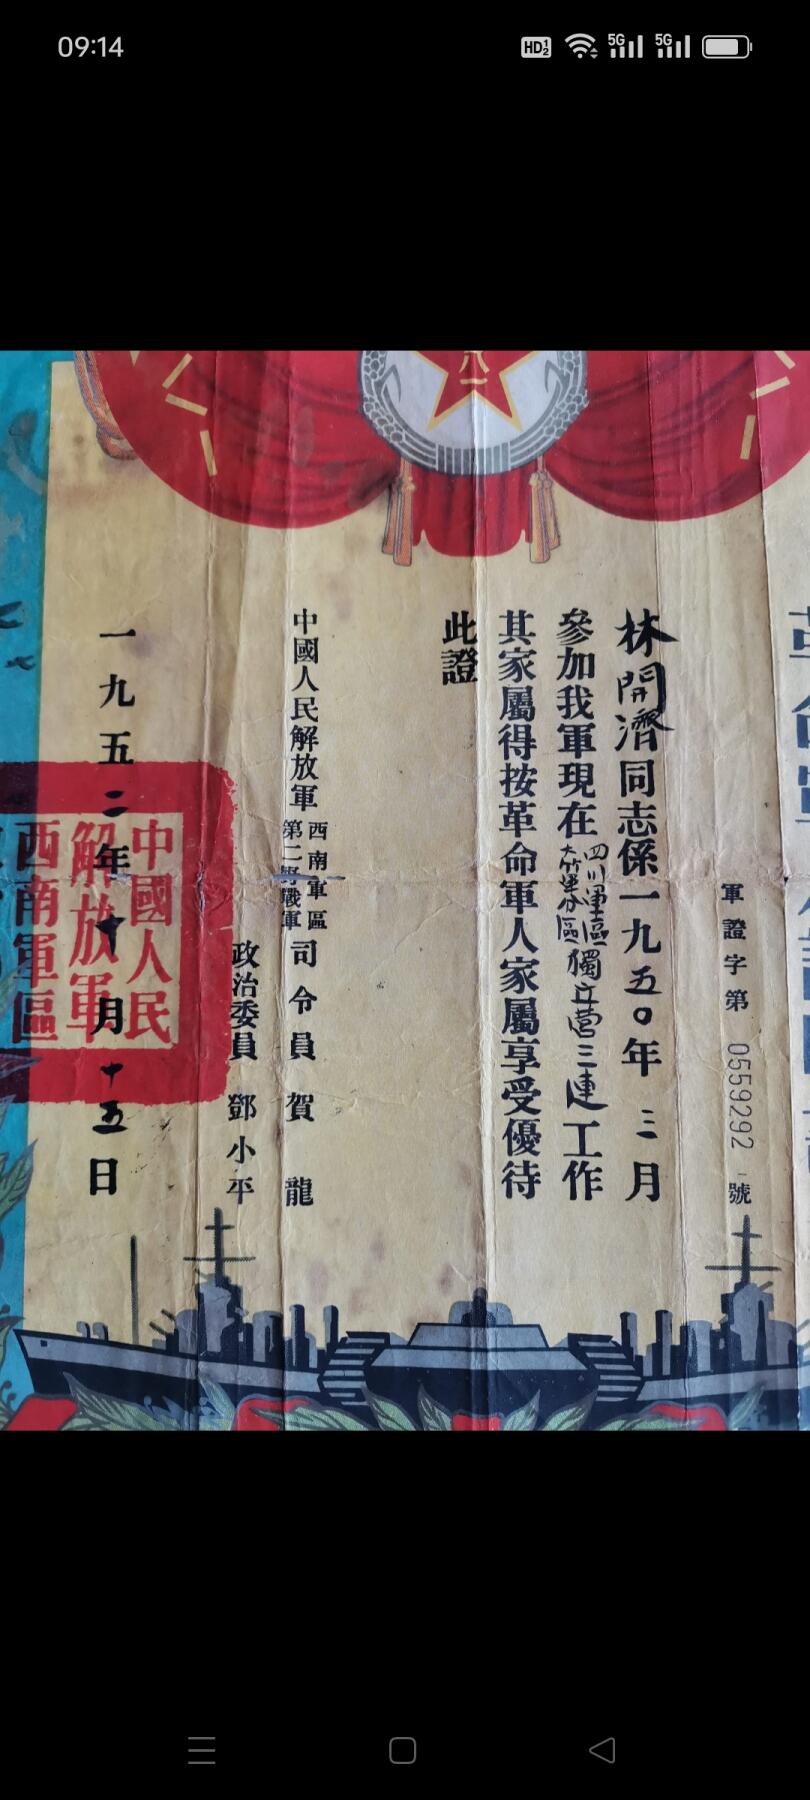 09:14
HD 1 2
5G
5G
八一
軍證字第 0559292 號
林開濟同志係一九五〇年三月
參加我軍現在四川軍區大竹軍分區獨立營三連工作
其家屬得按革命軍人家屬享受優待
此證
中國人民解放軍西南軍區第二野戰軍司令員賀龍
政治委員鄧小平
一九五二年十月十五日
中國人民
解放軍
西南軍區